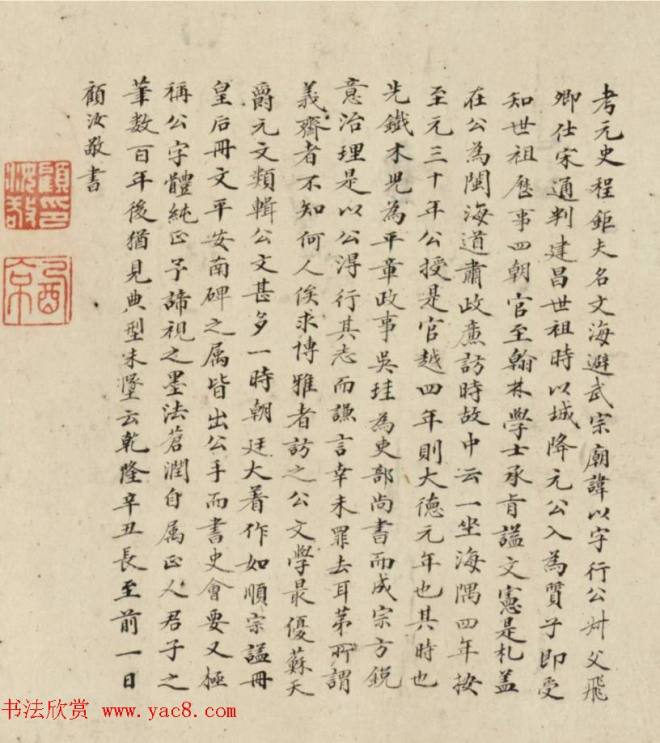 考元史程鉅夫名文海避武宗廟諱以字行公叔父飛
卿仕宋通判建昌世祖時以城降元公入為質子即受
知世祖歷事四朝官至翰林學士承旨諡文憲是札蓋
在公為閩海道肅政廉訪時故中云一坐海隅四年按
至元三十年公授是官越四年則大德元年也其時也
先鐵木兒為平章政事吳珪為吏部尚書而成宗方銳
意治理是以公得行其志而謙言幸未罪去耳第所謂
義齋者不知何人俟求博雅者訪之公文學最優蘇天
爵元文類輯公文甚多一時朝廷大著作如順宗謚冊
皇后冊文平安南碑之属皆出公手而書史會要又極
稱公字體純正予諦視之墨法蒼潤自属正人君子之
筆數百年後猶見典型未墜云乾隆辛丑長至前一日
顧汝敬書
顧印汝敬
书法欣赏 www.yac8.com